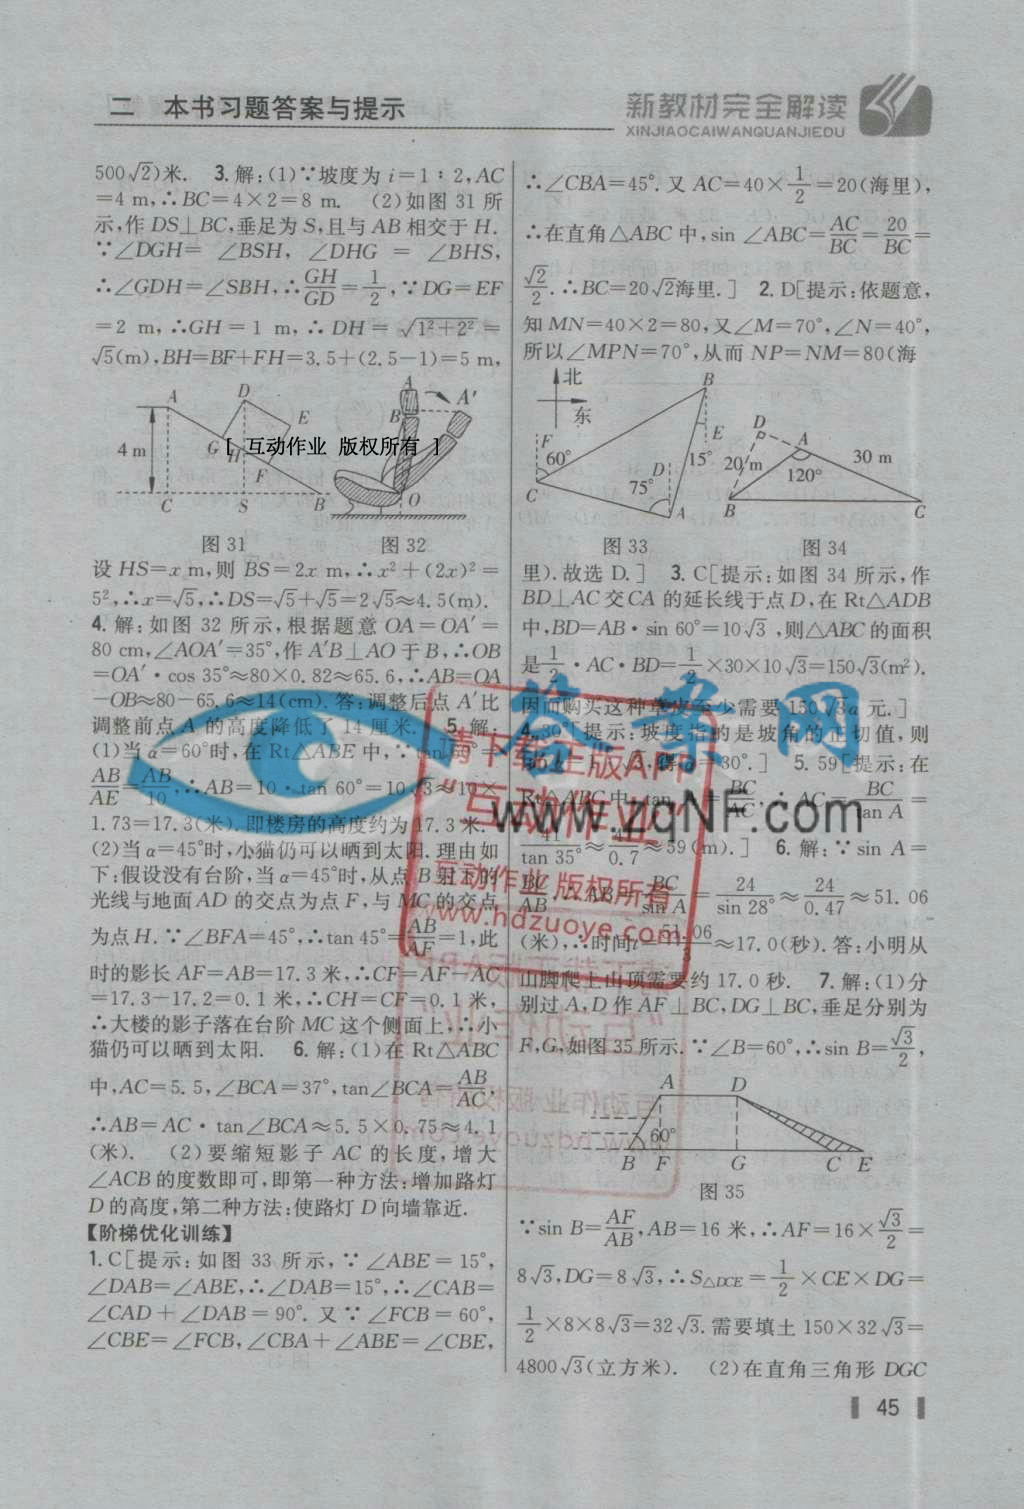 二 本书习题答案与提示
新教材完全解读
XINJIAOCAIWANQUANJIEDU
500√2)米. 3.解:(1)∵坡度为 i=1∶2,AC
=4 m,∴BC=4×2=8 m. (2)如图 31 所
示,作 DS⊥BC,垂足为 S,且与 AB 相交于 H.
∵∠DGH= ∠BSH, ∠DHG = ∠BHS,
∴∠GDH=∠SBH,∴GH/GD=1/2,∵DG=EF
=2 m,∴GH=1 m,∴DH=√(1²+2²)=
√5(m),BH=BF+FH=3.5+(2.5-1)=5 m,
A D E G H F 4 m C S B
A A′ B O
[ 互动作业 版权所有 ]
图 31 图 32
设 HS=x m,则 BS=2x m,∴x²+(2x)²=
5²,∴x=√5,∴DS=√5+√5=2√5≈4.5(m).
4.解:如图 32 所示,根据题意 OA=OA′=
80 cm,∠AOA′=35°,作 A′B⊥AO 于 B,∴OB
=OA′·cos 35°≈80×0.82≈65.6,∴AB=OA
-OB≈80-65.6≈14(cm).答:调整后点 A′比
调整前点 A 的高度降低了 14 厘米. 5.解:
(1)当 α=60°时,在 Rt△ABE 中,∵tan 60°=
AB/AE=AB/10,∴AB=10·tan 60°=10√3≈10×
1.73=17.3(米).即楼房的高度约为 17.3 米.
(2)当 α=45°时,小猫仍可以晒到太阳.理由如
下:假设没有台阶,当 α=45°时,从点 B 射下的
光线与地面 AD 的交点为点 F,与 MC 的交点
为点 H.∵∠BFA=45°,∴tan 45°=AB/AF=1,此
时的影长 AF=AB=17.3 米,∴CF=AF-AC
=17.3-17.2=0.1 米,∴CH=CF=0.1 米,
∴大楼的影子落在台阶 MC 这个侧面上,∴小
猫仍可以晒到太阳. 6.解:(1)在 Rt△ABC
中,AC=5.5,∠BCA=37°,tan∠BCA=AB/AC,
∴AB=AC·tan∠BCA≈5.5×0.75≈4.1
(米). (2)要缩短影子 AC 的长度,增大
∠ACB 的度数即可,即第一种方法:增加路灯
D 的高度,第二种方法:使路灯 D 向墙靠近.
【阶梯优化训练】
1.C[提示:如图 33 所示,∵∠ABE=15°,
∠DAB=∠ABE,∴∠DAB=15°,∴∠CAB=
∠CAD+∠DAB=90°.又∵∠FCB=60°,
∠CBE=∠FCB,∠CBA+∠ABE=∠CBE,
∴∠CBA=45°.又 AC=40×1/2=20(海里),
∴在直角△ABC 中,sin ∠ABC=AC/BC=20/BC=
√2/2.∴BC=20√2海里.] 2.D[提示:依题意,
知 MN=40×2=80,又∠M=70°,∠N=40°,
所以∠MPN=70°,从而 NP=NM=80(海
北 东 B F E 60° 15° C D 75° A
D A 20 m 30 m 120° B C
图 33 图 34
里).故选 D.] 3.C[提示:如图 34 所示,作
BD⊥AC 交 CA 的延长线于点 D,在 Rt△ADB
中,BD=AB·sin 60°=10√3,则△ABC 的面积
是1/2·AC·BD=1/2×30×10√3=150√3(m²).
因而购买这种草皮至少需要 150√3a 元.]
4.30°[提示:坡度指的是坡角的正切值,则
√3,得α=30°.] 5.59[提示:在
Rt△ABC中,tan =BC/AC,∴AC=BC/tan A=
41/tan 35°≈41/0.7≈59(m).] 6.解:∵sin A=
BC/AB,∴AB=BC/sin A=24/sin 28°≈24/0.47≈51.06
(米),∴时间t=51.06/3≈17.0(秒).答:小明从
山脚爬上山顶需要约 17.0 秒. 7.解:(1)分
别过 A,D 作 AF⊥BC,DG⊥BC,垂足分别为
F,G,如图 35 所示.∵∠B=60°,∴sin B=√3/2,
A D 60° B F G C E
图 35
∵sin B=AF/AB,AB=16 米,∴AF=16×√3/2=
8√3,DG=8√3,∴S△DCE=1/2×CE×DG=
1/2×8×8√3=32√3.需要填土 150×32√3=
4800√3(立方米). (2)在直角三角形 DGC
45
答案网
www.zqNF.com
请下载正版APP
“互动作业”
互动作业 版权所有
www.hdzuoye.com